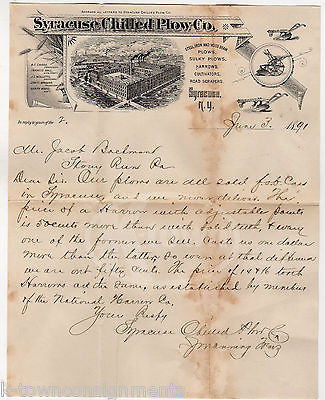 ADDRESS ALL LETTERS TO SYRACUSE CHILLED PLOW CO.
Syracuse Chilled Plow Co.
STEEL, IRON AND WOOD BEAM
PLOWS,
SULKY PLOWS,
HARROWS,
CULTIVATORS,
ROAD SCRAPERS.
Syracuse,
N.Y.
In reply to yours of the 2.
June 3. 1891
Mr. Jacob
Stony Run Pa
Dear Sir. Our plows are all sold f.o.b. Cars
in Syracuse, and we never deliver. The
price of a Harrow with adjustable
is 50 cents more than with solid teeth, & every
one of the former we sell. Costs us one dollar
more than the latter, so even at that difference
we are out fifty cents. The price of 14 & 16 tooth
Harrows are the same, as established by members
of the National Harrow Co.
Yours Respy
Syracuse Chilled Plow Co
k-townconsignments